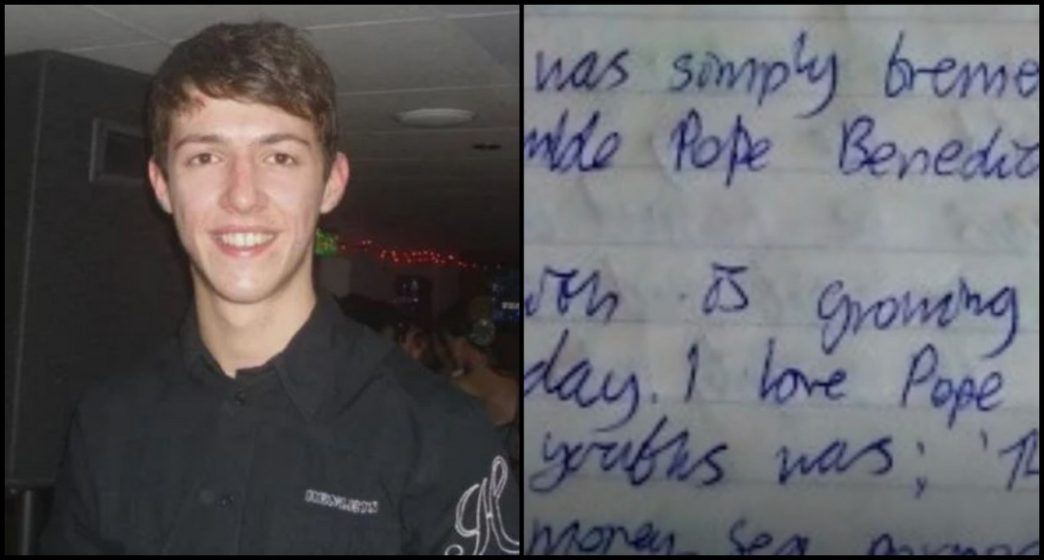 was simply treme
mble Pope Benedic
is growing
day. I love Pope
youths was; 'Th
money, sex,